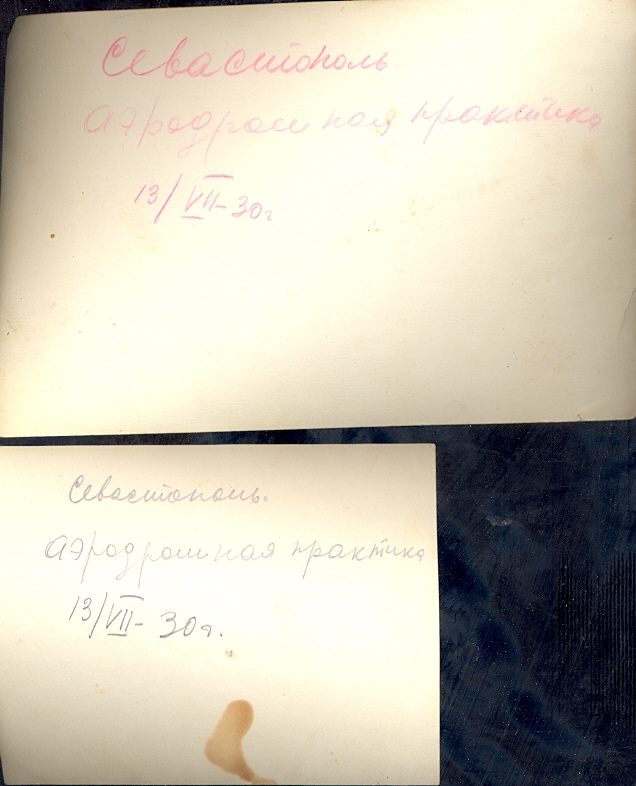 Севастополь
Аэродромная практика
13/VII-30г
Севастополь.
Аэродромная практика
13/VII-30г.